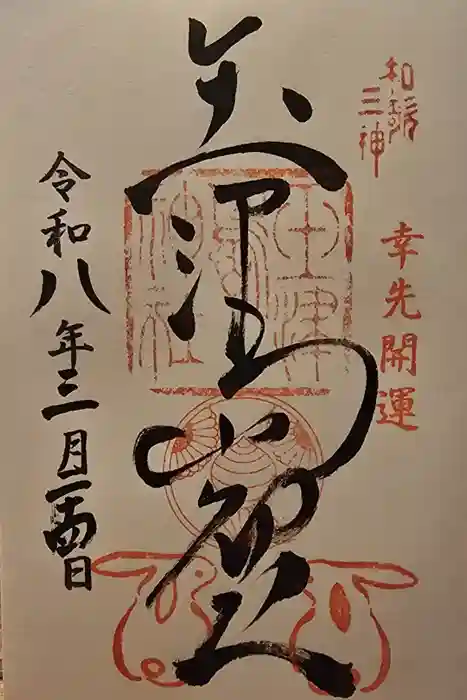 和歌三神
幸先開運
玉津島神社
令和八年三月二十四日